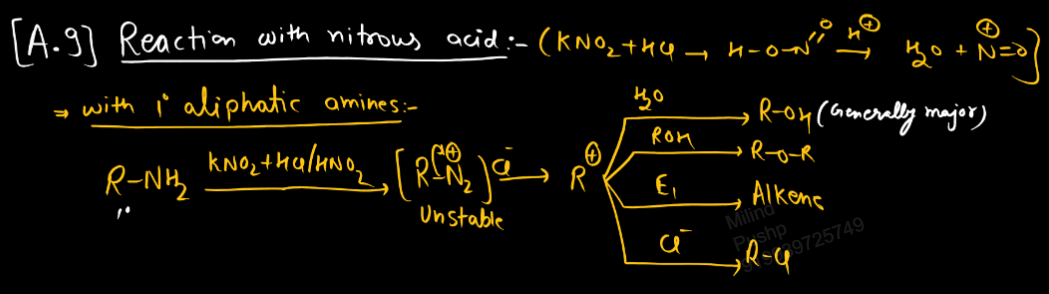 [A.9] Reaction with nitrous acid:- (KNO₂+HCl → H-O-N=O –H⊕→ H₂O + N⊕=O]
⇒ with 1° aliphatic amines:-
R-NH₂ –KNO₂+HCl/HNO₂→ [R-N₂⊕]Cl⁻ → R⊕
1°
Unstable
H₂O → R-OH (Generally major)
ROH → R-O-R
E₁ → Alkene
Cl⁻ → R-Cl
Milind
Pushp